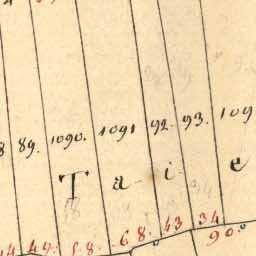 89. 1090. 1091 92. 93. 109
T a i e
44 49. 58. 68. 43 34
90.